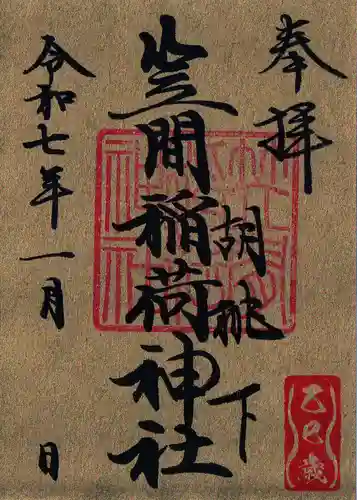 奉拝
胡桃下
笠間稲荷神社
令和七年一月 日
乙巳歳